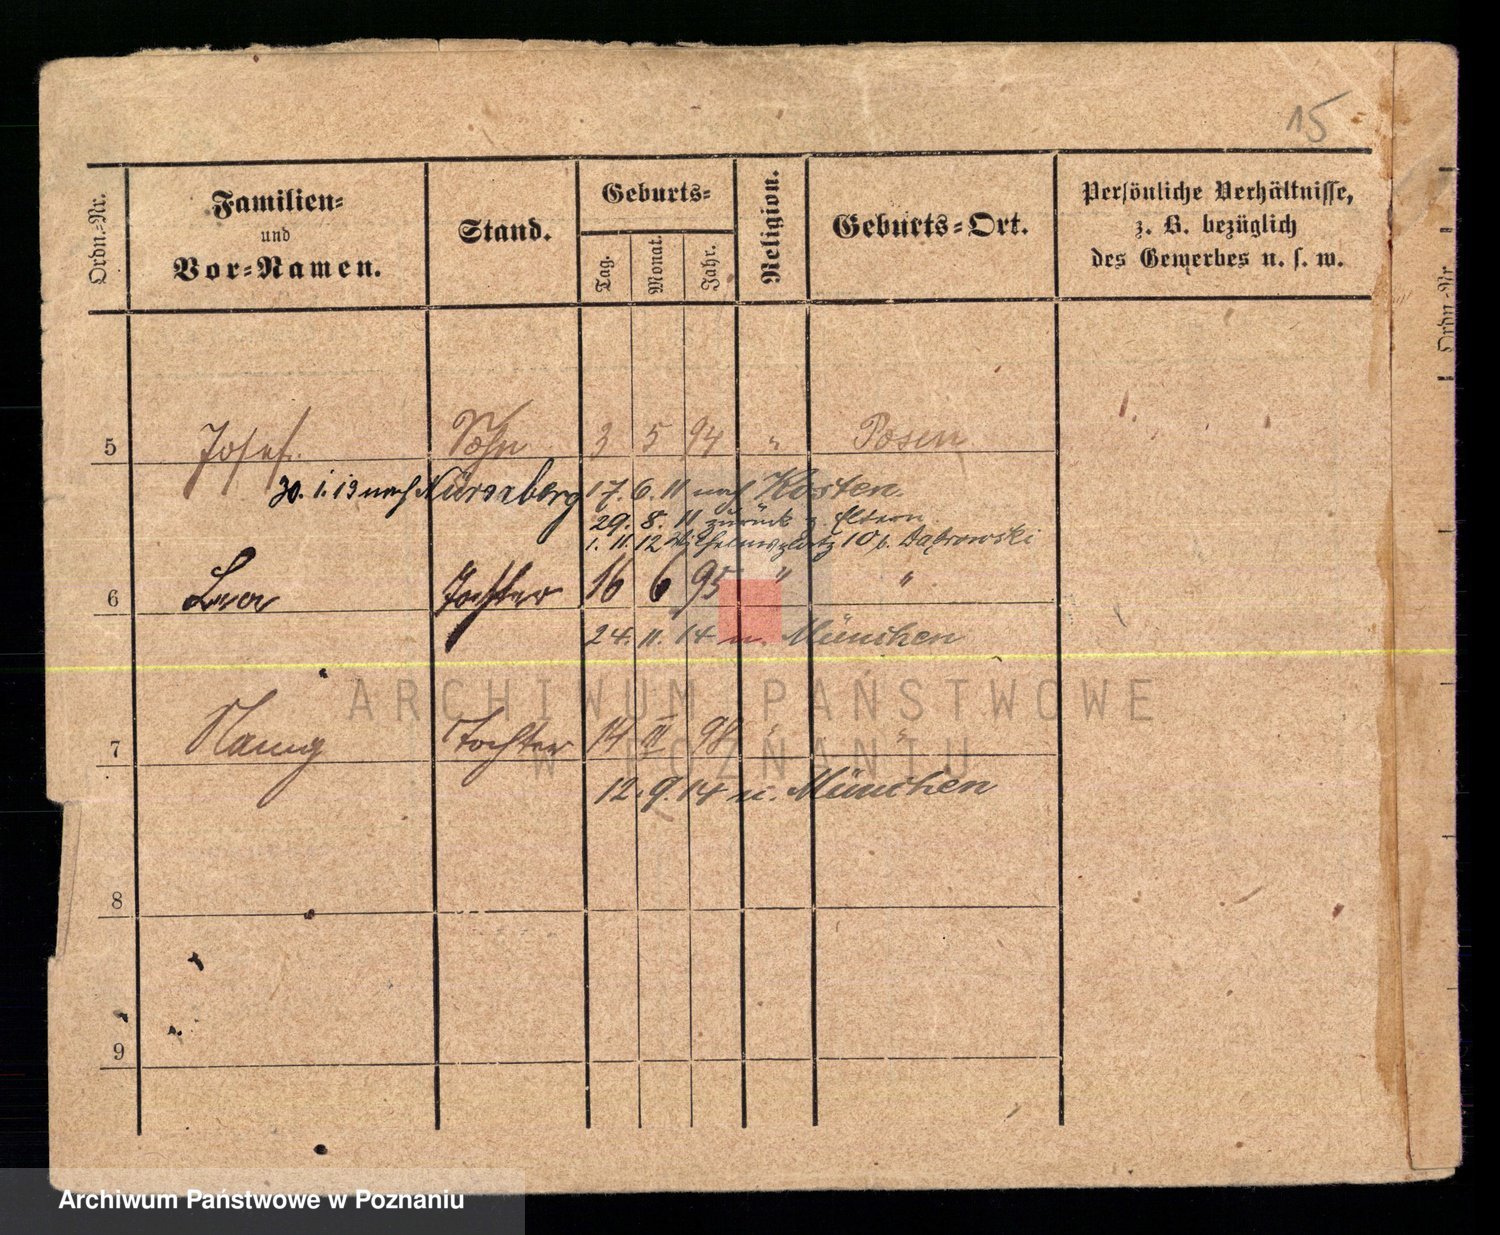 15
Ordn.-Nr.
Familien-
und
Vor-Namen.
Stand.
Geburts-
Tag.
Monat.
Jahr.
Religion.
Geburts-Ort.
Persönliche Verhältnisse,
z. B. bezüglich
des Gewerbes u. s. w.
Ordn.-Nr.
5 Josef. Sohn 3 5 94 " Posen
30. 1. 13 nach Nürnberg 17. 6. 11 nach Kosten.
29. 8. 11 zurück z. Eltern
1. 11. 12 Wilhelmsplatz 10 b. Dąbrowski
6 Tochter 16 6 95 " "
24. 11. 14 n. München
7 Tochter 14 III 98 " "
12. 9. 14 n. München
8
9
ARCHIWUM PAŃSTWOWE
W POZNANIU
Archiwum Państwowe w Poznaniu